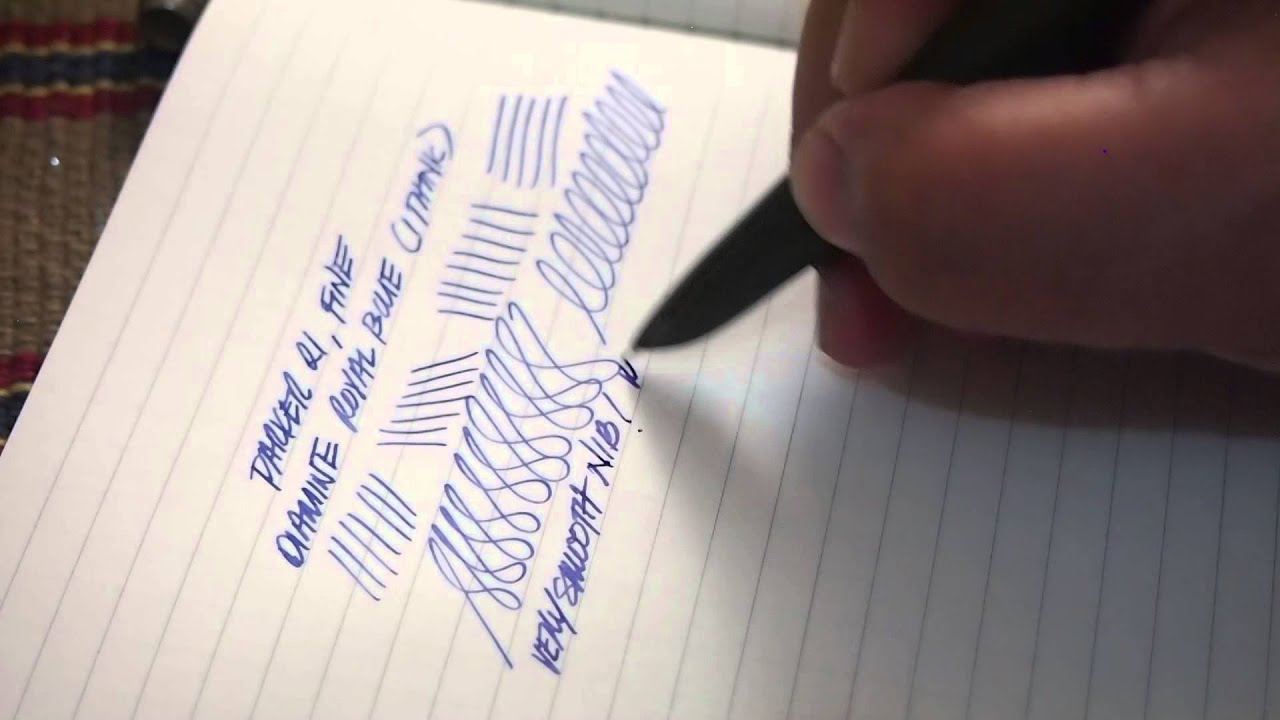 PARKER 21, FINE
DIAMINE ROYAL BLUE (I THINK)
VERY SMOOTH NIB,